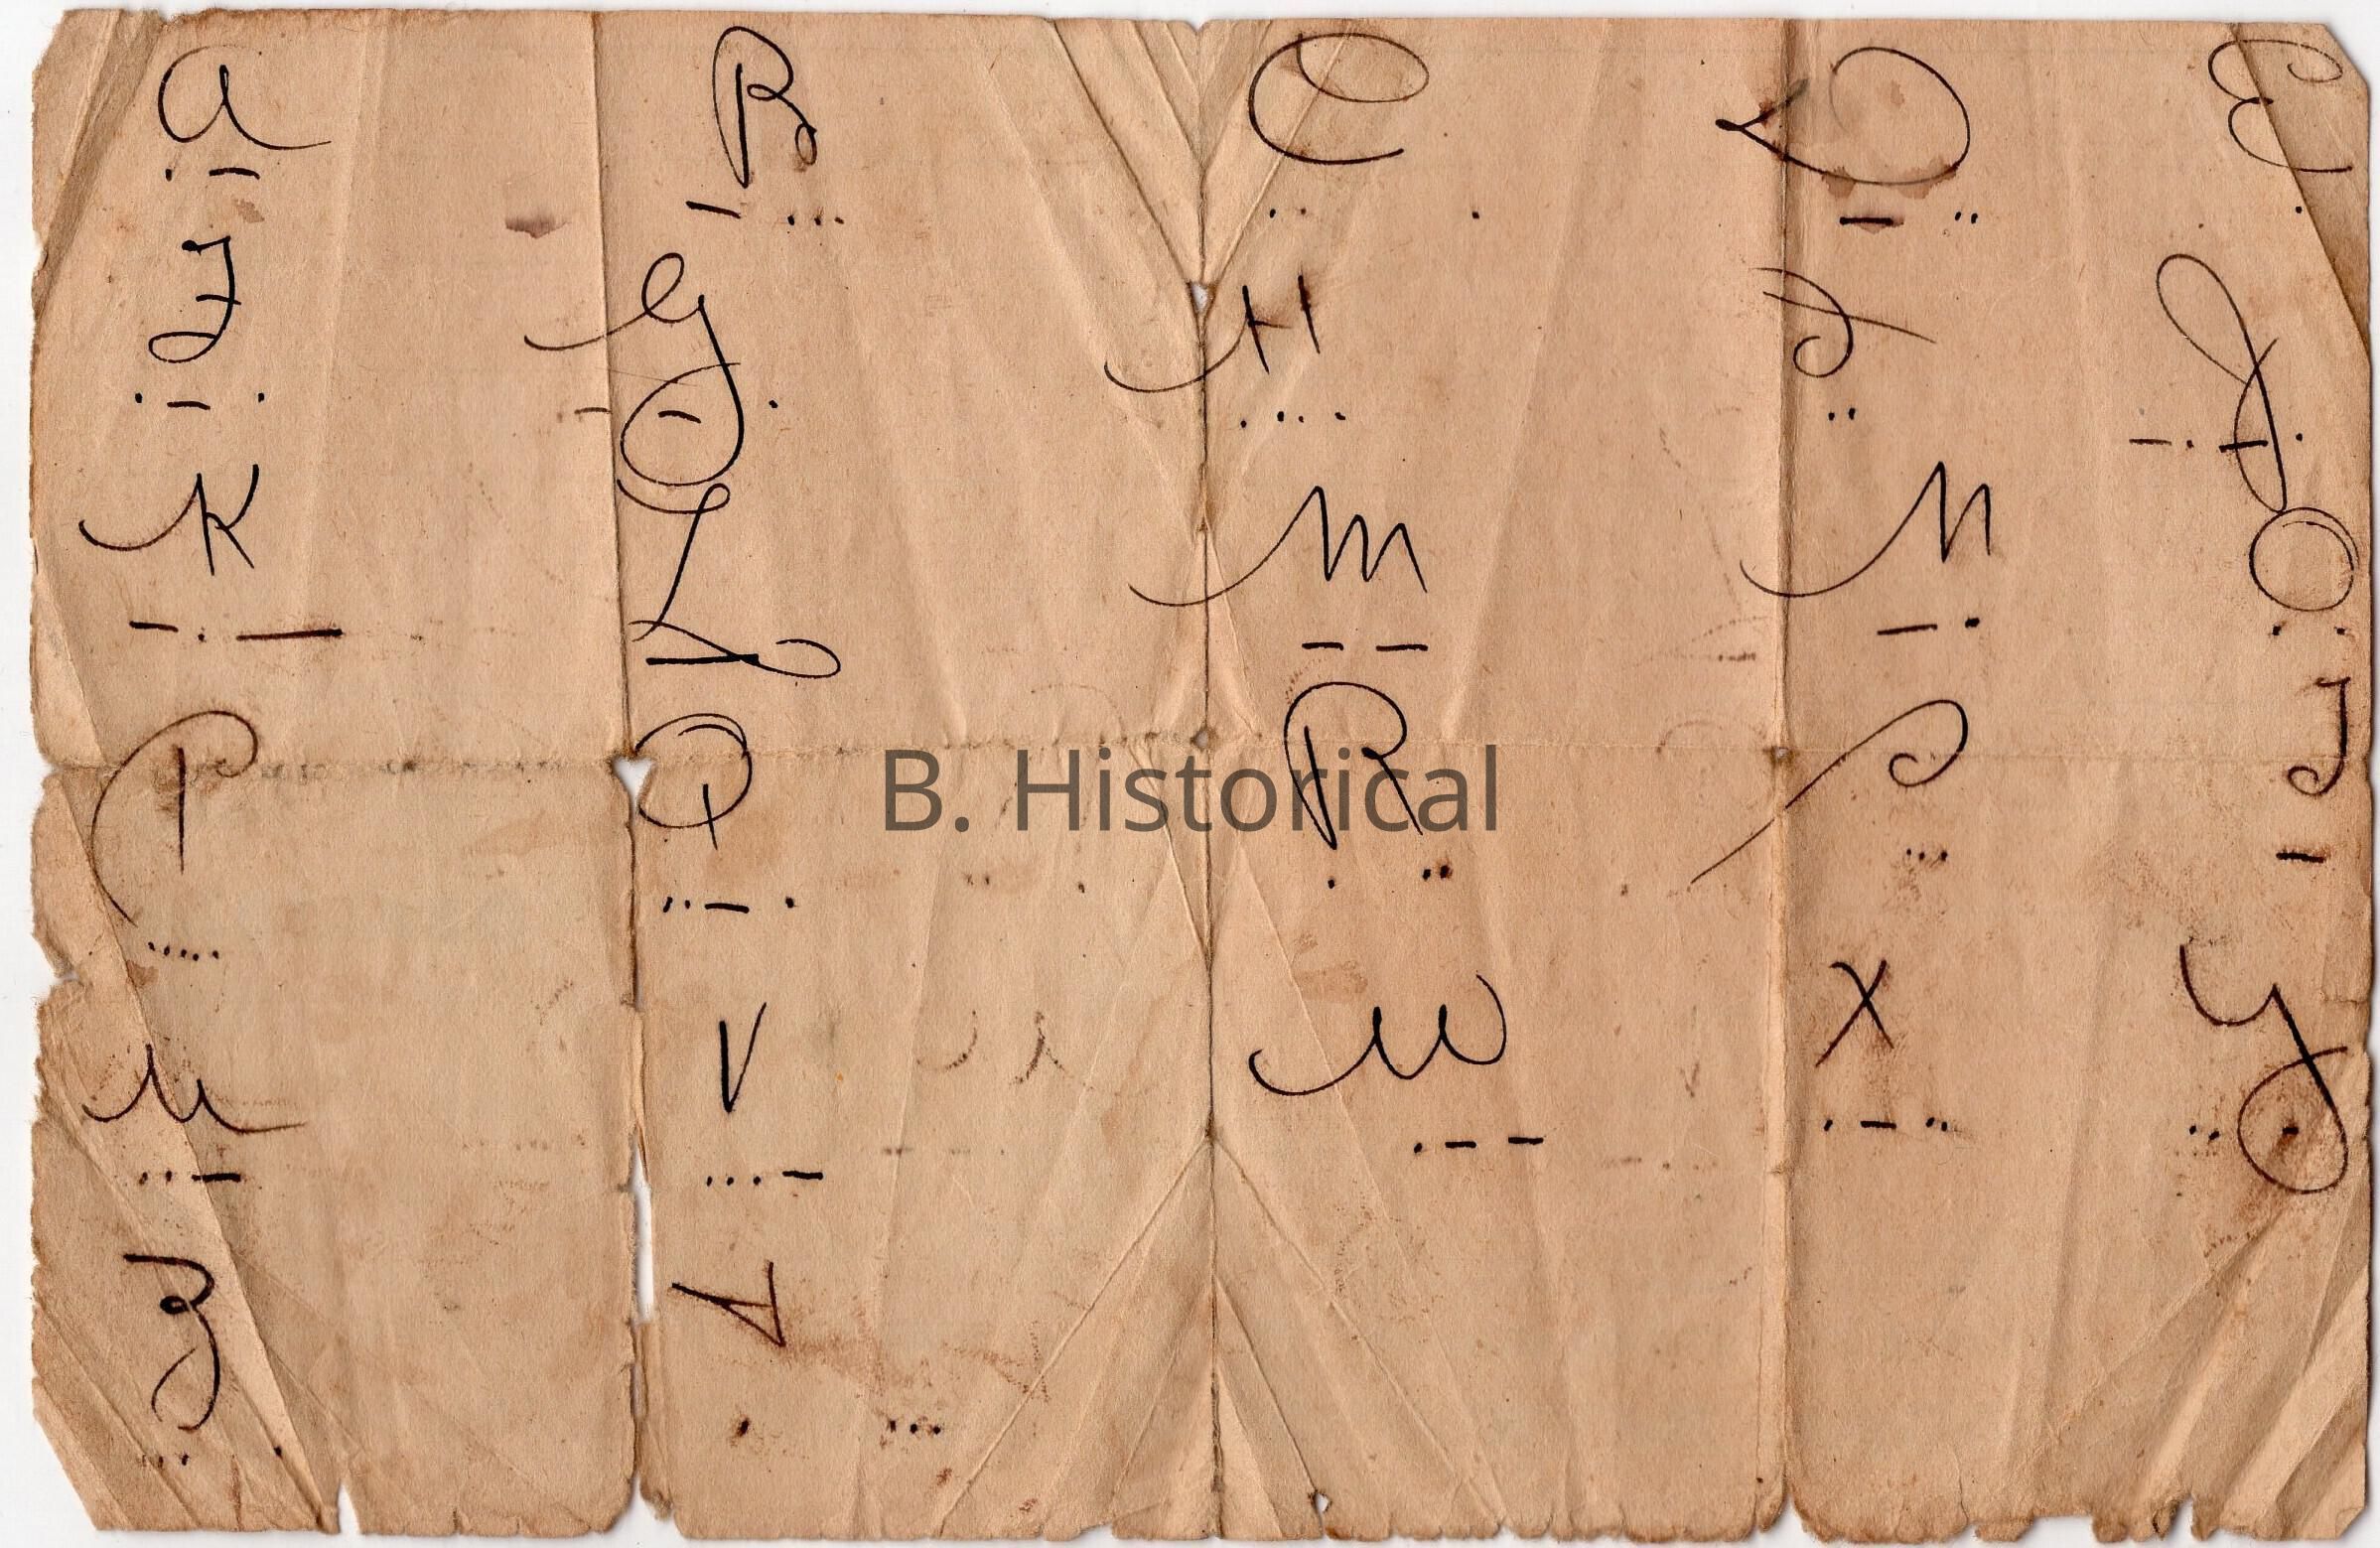 A B C D E
.- -... .. . -.. .
F G H I J
.-. --. .... .. -.-.
K L M N O
-.- — -- -. . .
P B. Historical Q R S T
..... ..-. . .. ... -
U V W X Y
..- ...- .-- .-.. .. ..
Z &
... . . ...